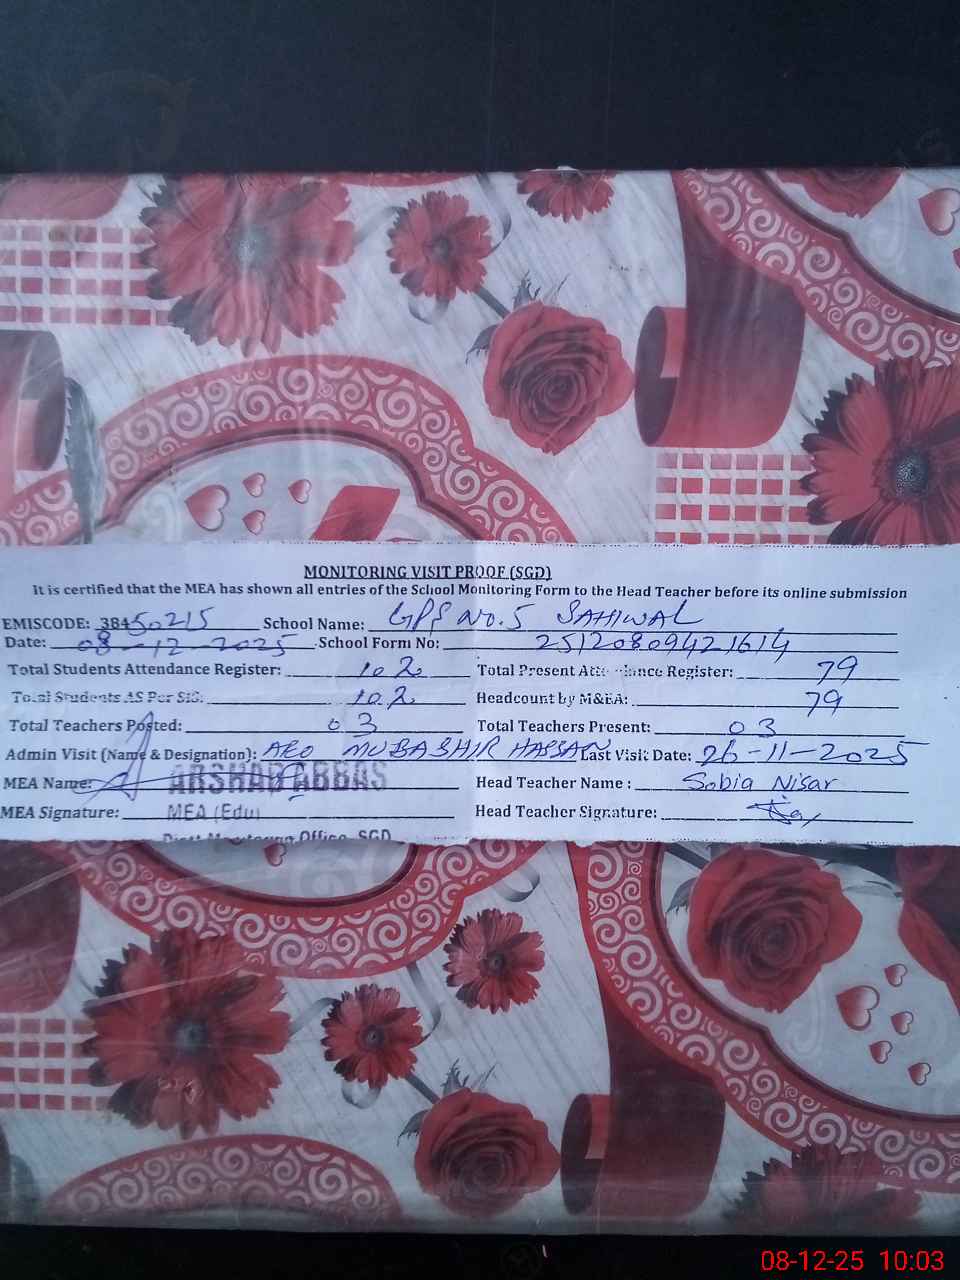 MONITORING VISIT PROOF (SGD)
It is certified that the MEA has shown all entries of the School Monitoring Form to the Head Teacher before its online submission
EMISCODE: 38450215 School Name: GPS No.5 SAHIWAL
Date: 08-12-2025 School Form No: 25120809421614
Total Students Attendance Register: 102 Total Present Attendance Register: 79
Total Students AS Per SIS: 102 Headcount by M&EA: 79
Total Teachers Posted: 03 Total Teachers Present: 03
Admin Visit (Name & Designation): AEO MUBASHIR HASSAN Last Visit Date: 26-11-2025
MEA Name: ARSHAD ABBAS Head Teacher Name : Sobia Nisar
MEA Signature: MEA (Edu) Head Teacher Signature:
Office, SGD
08-12-25 10:03